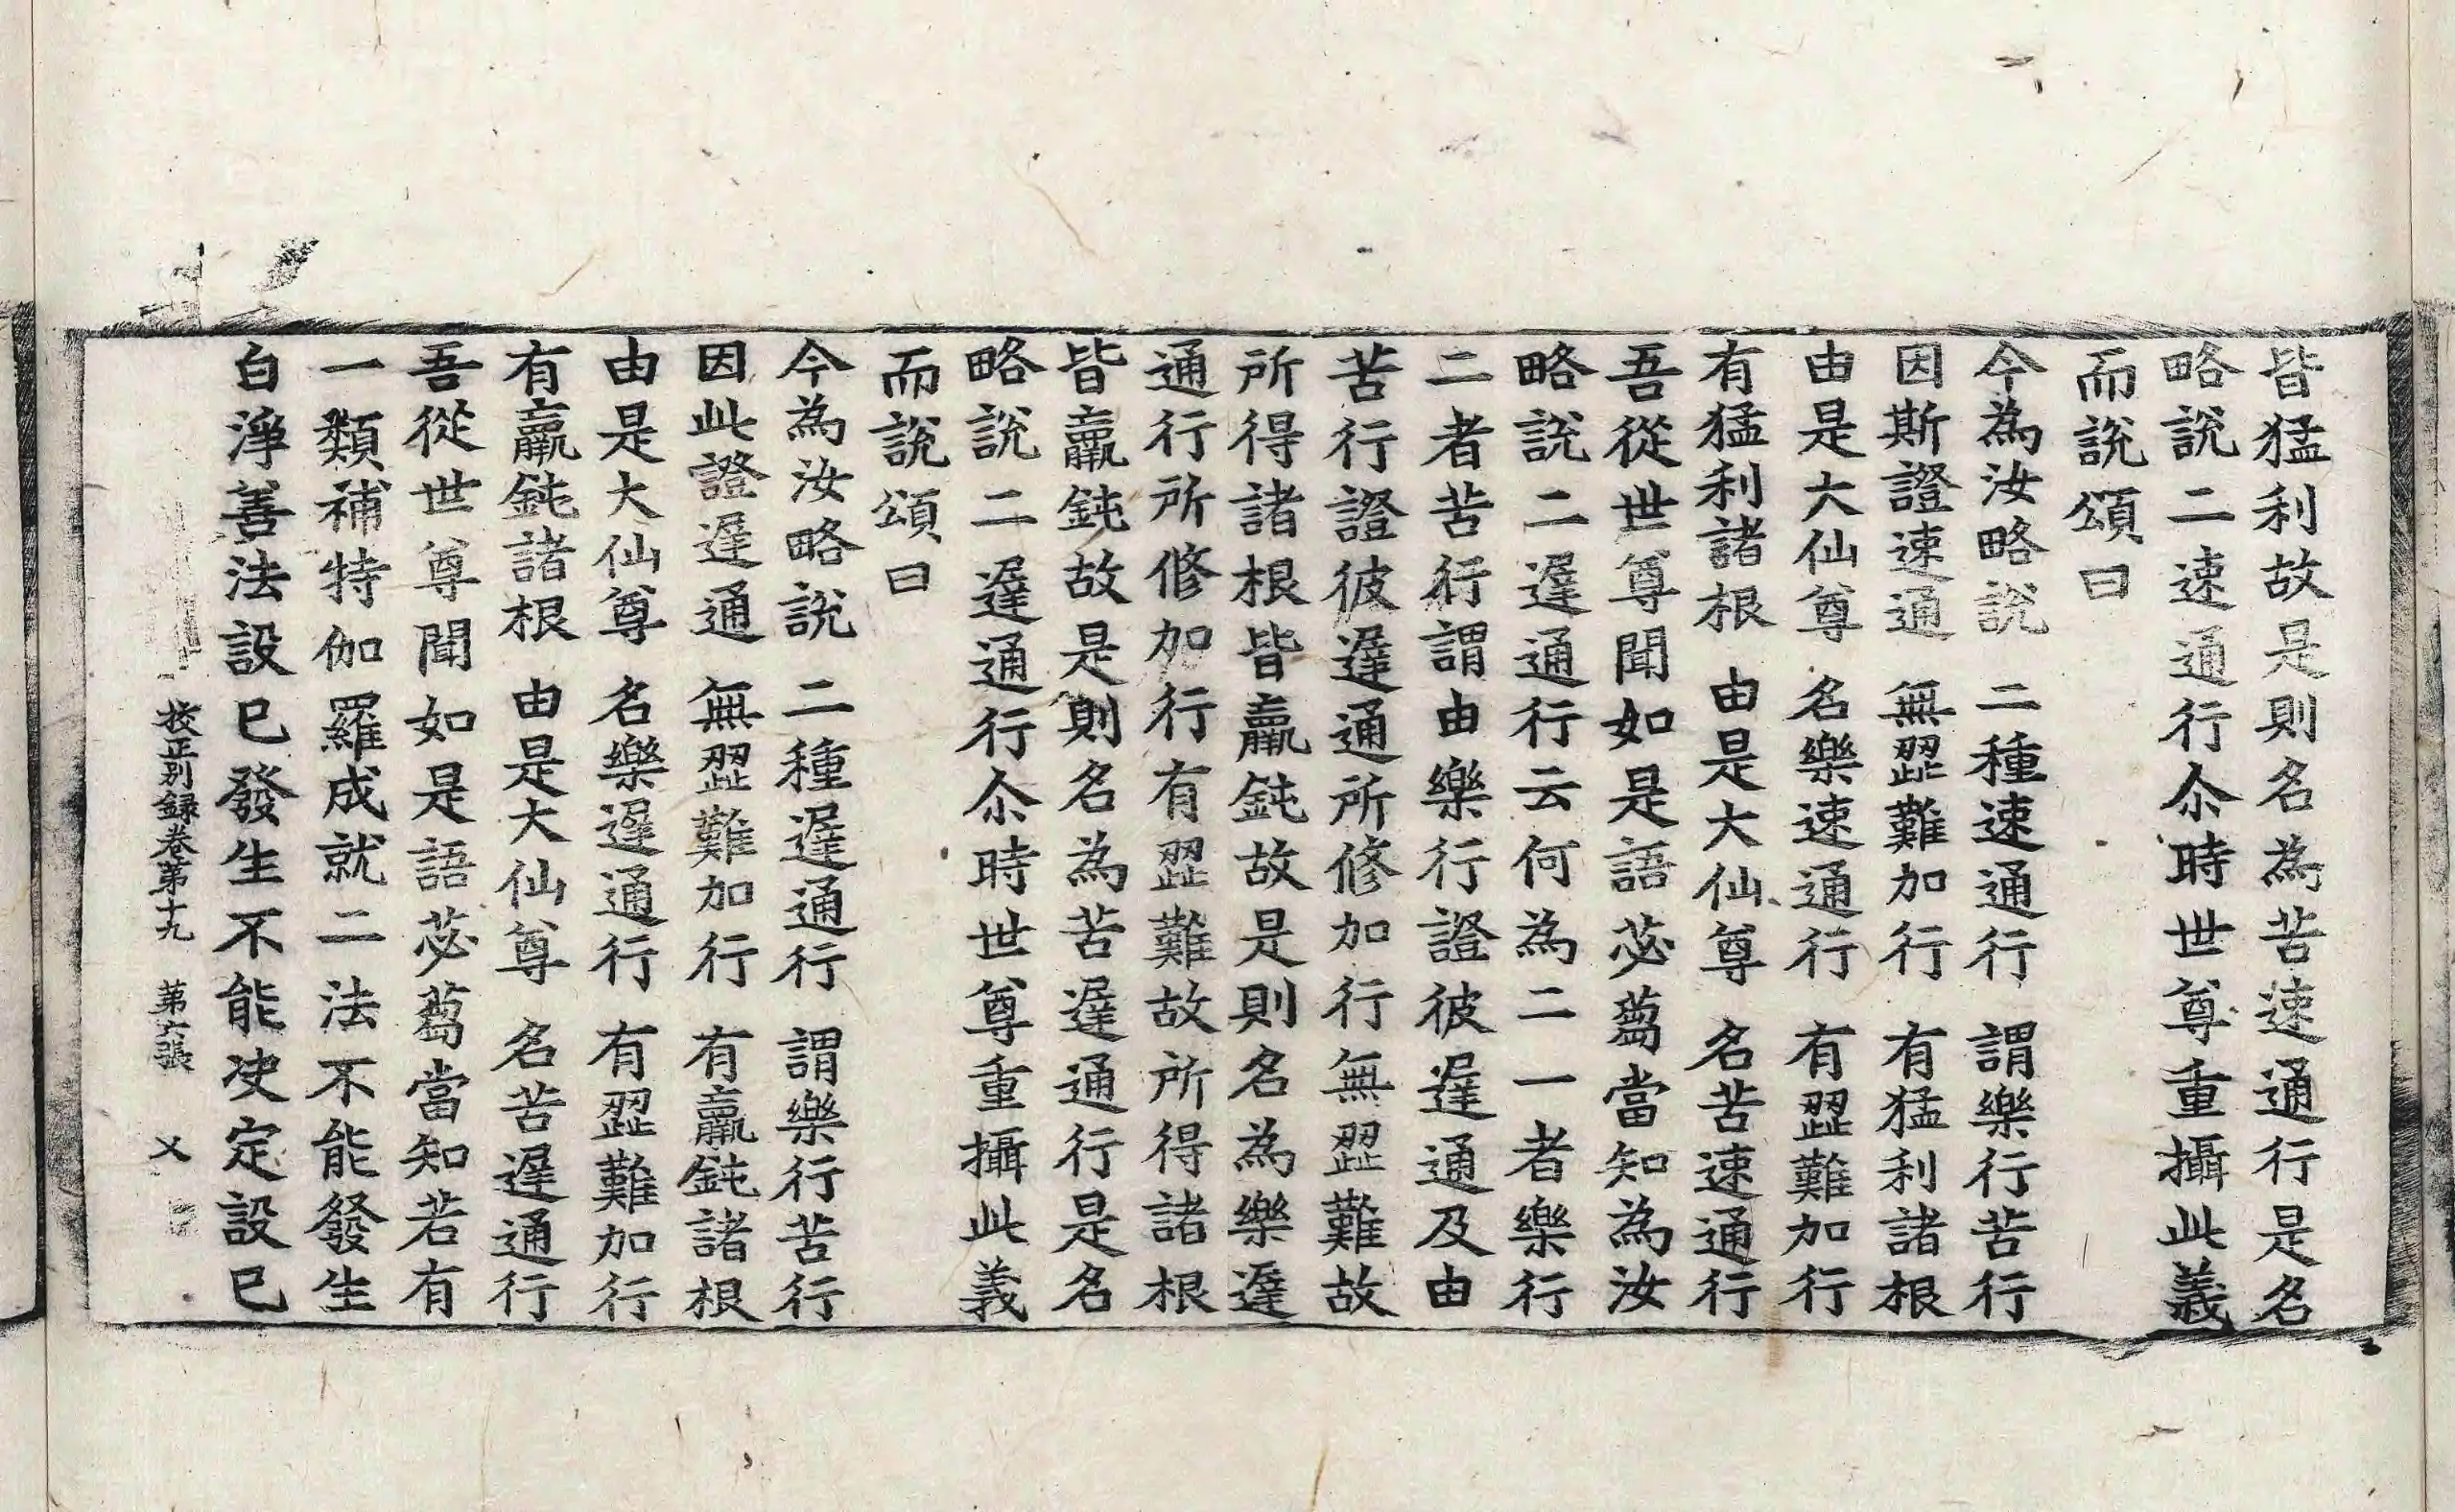 皆猛利故是則名為苦速通行是名
略說二速通行尒時世尊重攝此義
而說頌曰
今為汝略說　二種速通行　謂樂行苦行
因斯證速通　無澀難加行　有猛利諸根
由是大仙尊　名樂速通行　有澀難加行
有猛利諸根　由是大仙尊　名苦速通行
吾從世尊聞如是語苾蒭當知為汝
略說二遲通行云何為二一者樂行
二者苦行謂由樂行證彼遲通及由
苦行證彼遲通所修加行無澀難故
所得諸根皆羸鈍故是則名為樂遲
通行所修加行有澀難故所得諸根
皆羸鈍故是則名為苦遲通行是名
略說二遲通行尒時世尊重攝此義
而說頌曰
今為汝略說　二種遲通行　謂樂行苦行
因此證遲通　無澀難加行　有羸鈍諸根
由是大仙尊　名樂遲通行　有澀難加行
有羸鈍諸根　由是大仙尊　名苦遲通行
吾從世尊聞如是語苾蒭當知若有
一類補特伽羅成就二法不能發生
白淨善法設已發生不能決定設已
挍正別錄卷第十九　第六張　乂